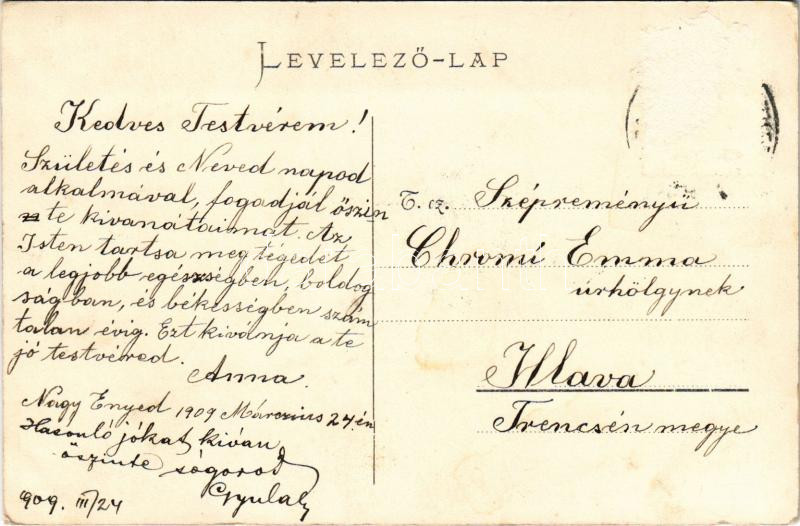 LEVELEZŐ-LAP
Kedves Testvérem!
Születés és Neved napod
alkalmával, fogadjál őszin
te kivanátaimat. Az
Isten tartsa meg tégedet
a legjobb egészségben, boldog
ságban, és békességben szám
talan évig. Ezt kivánja a te
jó testvéred.
Anna.
Nagy Enyed 1909 Márczius 24.én
Hasonló jókat kiván
őszinte sógorod
Gyula
909. III/24
T. cz. Szépreményü
Chromi Emma
úrhölgynek
Illava
Trencsén megye